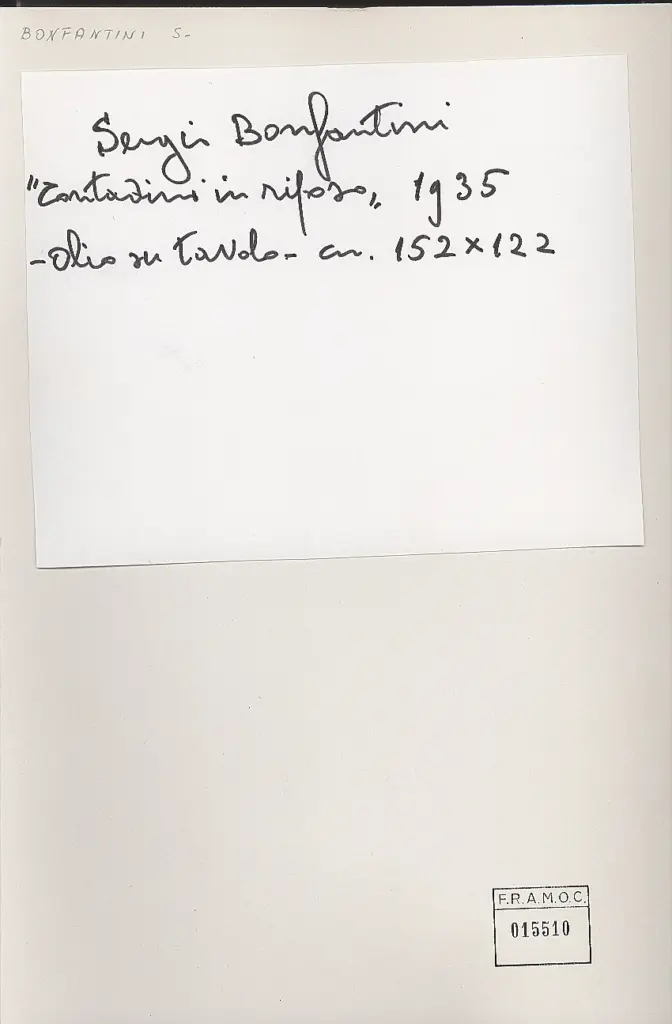 BONFANTINI S-
Sergio Bonfantini
"Contadini in riposo„ 1935
-olio su tavola- cm. 152x122
F.R.A.M.O.C.
015510